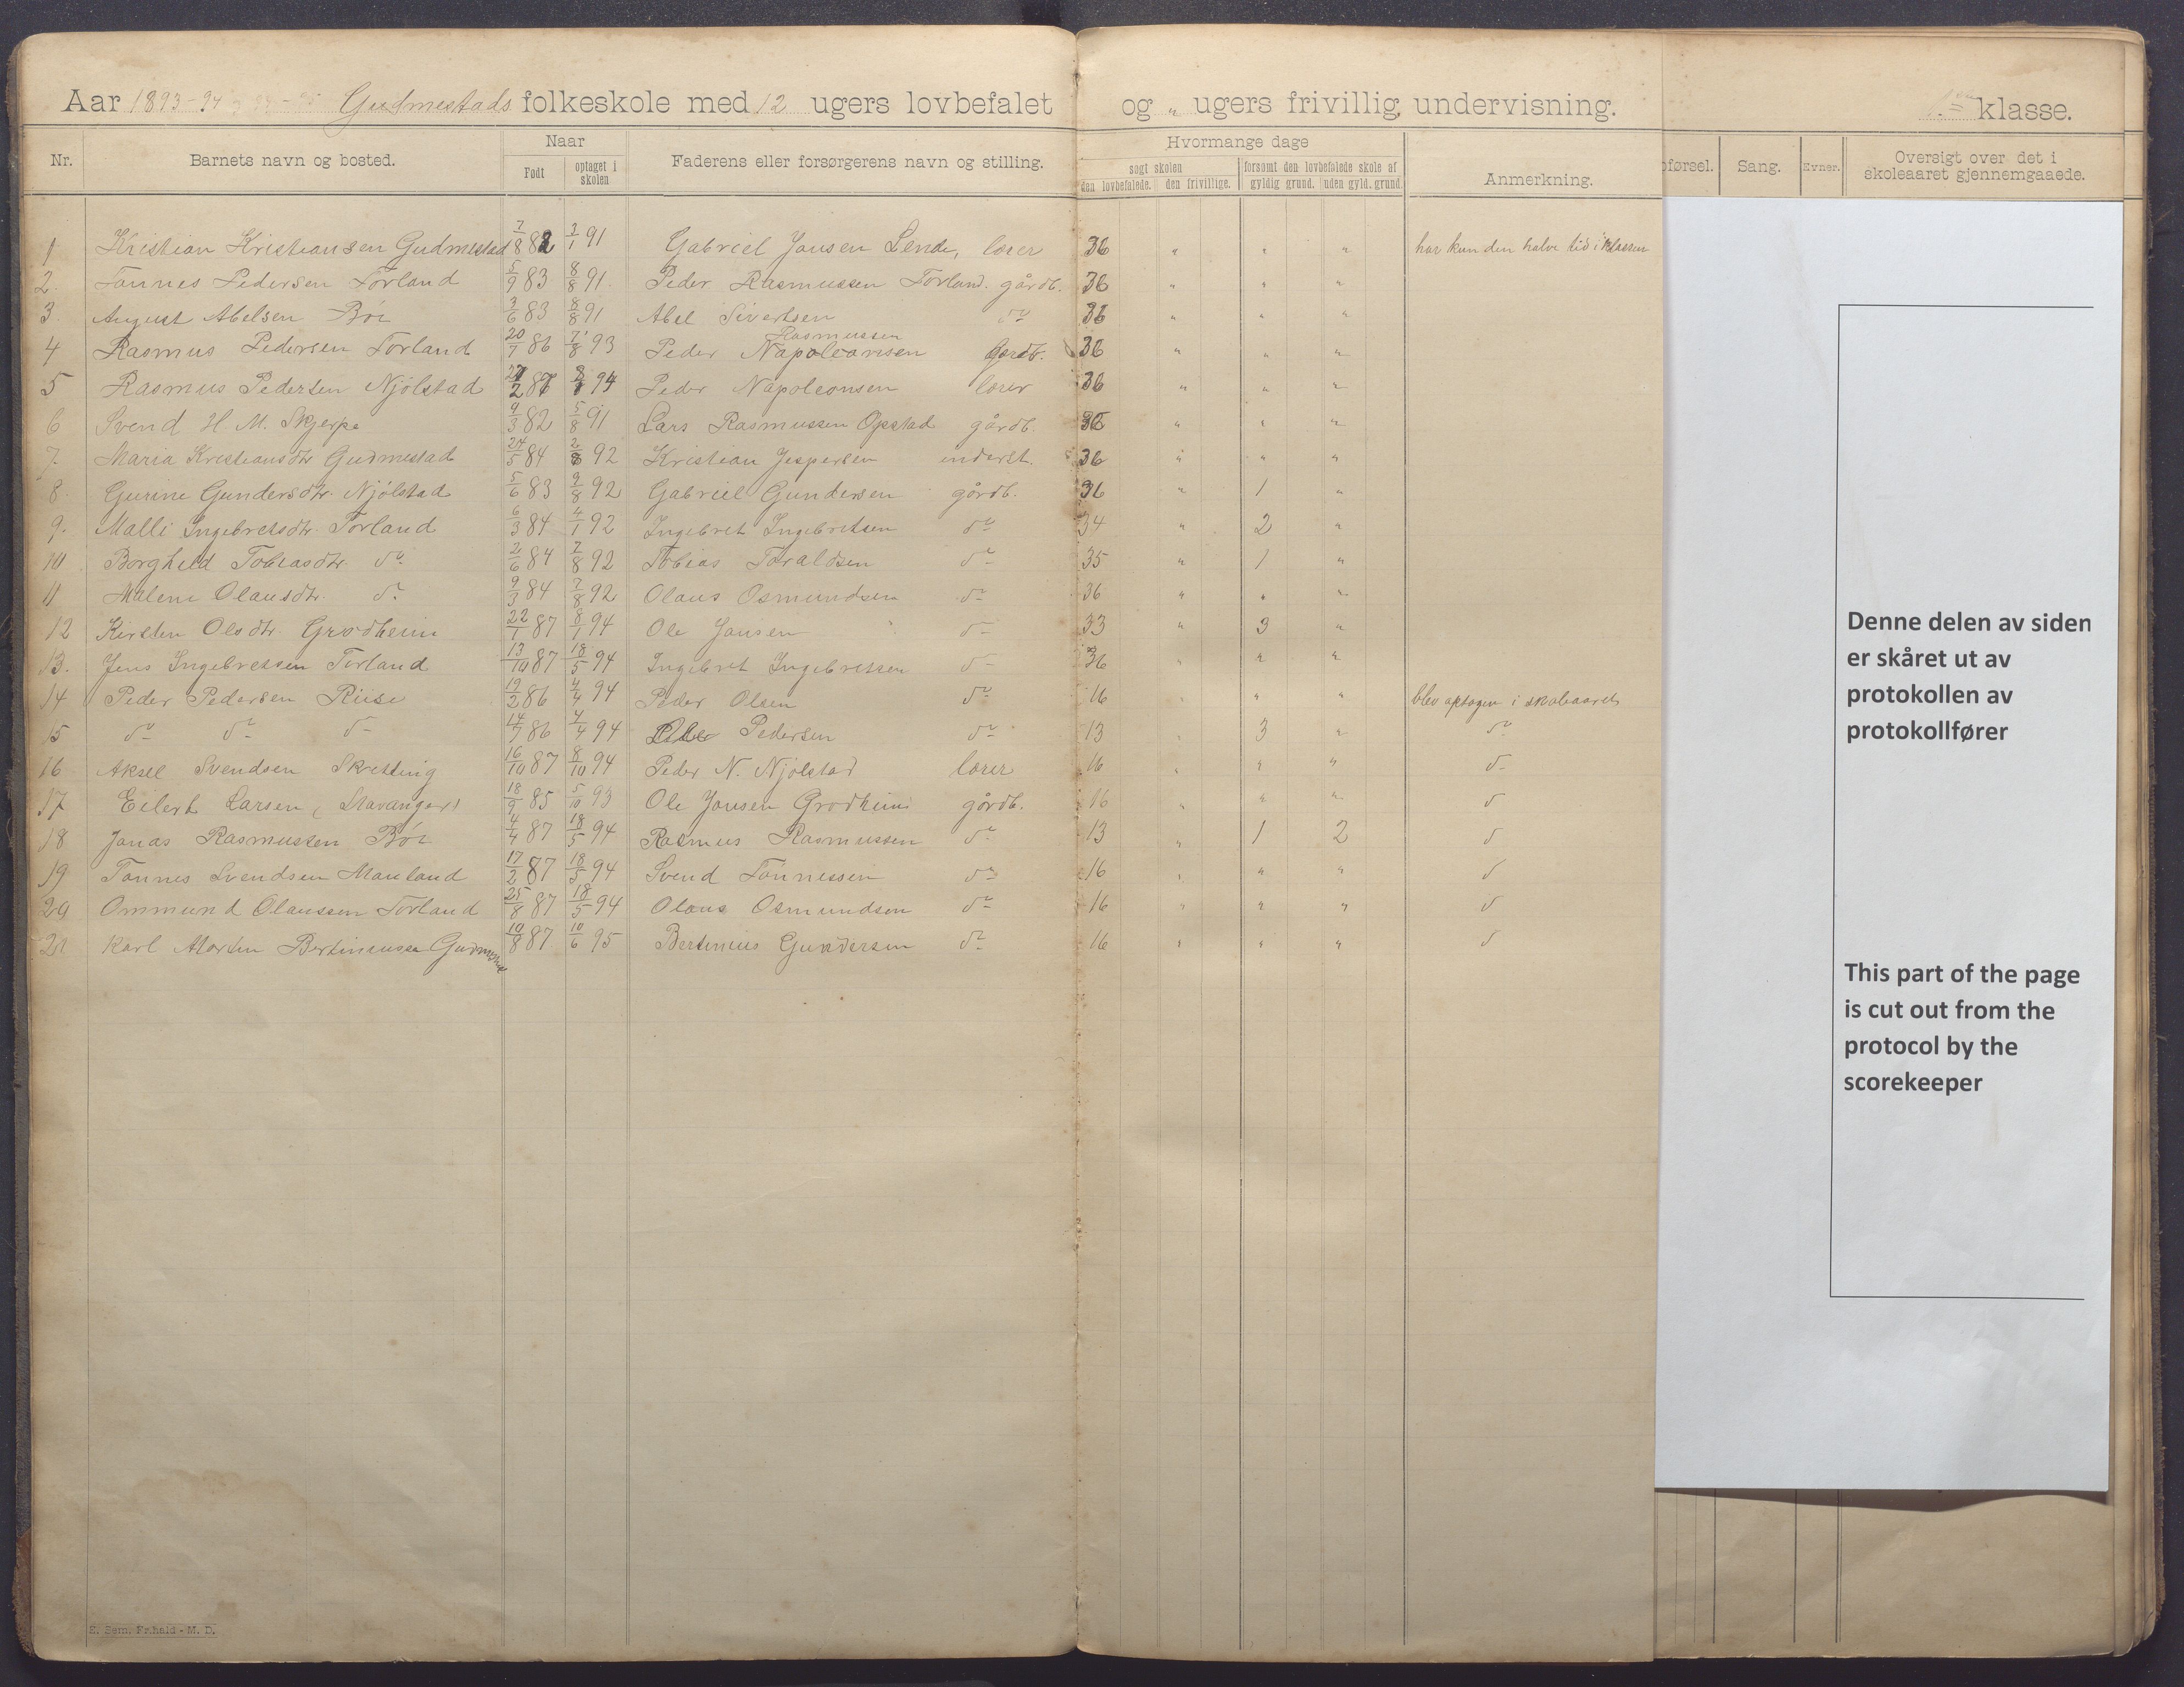 Aar 1893-94 94-95 Gudmestads folkeskole med 12 ugers lovbefalet og " ugers frivillig undervisning. 1ste klasse.
Nr. Barnets navn og bosted. Naar Født optaget i skolen Faderens eller forsørgerens navn og stilling. Hvormange dage søgt skolen den lovbefalede. den frivillige. forsømt den lovbefalede skole af gyldig grund. uden gyld. grund. Anmerkning. pførsel. Sang. Evner. Oversigt over det i skoleaaret gjennemgaaede.
1 Kristian Kristiansen Gudmestad 7/8 82 2/1 91 Gabriel Jonsen Lende, lærer 36 " " " har kun den halve tid i klassen
2. Tønnes Pedersen Torland 5/9 83 8/8 91. Peder Rasmussen Torland. gårdb. 36 " " "
3. August Abelsen Bø 3/6 83 8/8 91 Abel Sivertsen do 36 " " "
4 Rasmus Pedersen Torland 20/7 86 7/8 93 Peder Rasmussen Napoleonsen Gårdb. 36 " " "
5 Rasmus Pedersen Njølstad 2 87 94 Peder Napoleonsen lærer 36 " " "
6 Svend H M. Skjerpe 4/3 82 5/8 91 Lars Rasmussen Opstad gårdb. 36 " " "
7. Maria Kristiansdtr Gudmestad 24/5 84 2/8 92 Kristian Jespersen inderst. 36 " " "
8. Gurine Gundersdtr. Njølstad 5/6 83 9/8 92 Gabriel Gundersen gårdb. 36 " 1 "
9. Malli Ingebretsdtr. Torland 6/3 84 4/1 92 Ingebret Ingebretsen do 34 " 2 "
10 Borghild Tobiasdtr. do 2/6 84 7/8 92 Tobias Toraldsen do 35 " 1 "
11 Malene Olausdtr. do 9/3 84 7/8 92 Olaus Osmundsen do 36 " " "
12 Kirsten Olsdtr. Grødheim 22/1 87 8/1 94 Ole Jonsen do 33 " 3 "
13. Jens Ingebretsen Torland 13/10 87 18/5 94 Ingebret Ingebretsen do 36 " " "
14 Peder Pedersen Riise 19/2 86 4/4 94 Peder Olsen do 16 " " " blev optagen i skoleaaret
15 do do do 14/7 86 4/4 94 Ole Pedersen do 13 " 3 " do
16 Aksel Svendsen Skretting 16/10 87 8/10 94 Peder N. Njølstad lærer 16 " " " do
17 Eilert Larsen (Stavanger) 18/9 85 5/10 93 Ole Jonsen Grødheim gårdb. 16 " " " d
18 Jonas Rasmussen Bø 4/4 87 18/5 94 Rasmus Rasmussen do 13 " 1 2 d
19 Tønnes Svendsen Mauland 17/2 87 18/5 94 Svend Tønnessen do 16 " " " d
20 Ommund Olaussen Torland 25/8 87 18/5 94 Olaus Osmundsen do 16 " " " d
21 Karl Morten Bertinussen Gudmestad 10/8 87 10/6 95 Bertinius Gundersen do 16 " " " d
Denne delen av siden
er skåret ut av
protokollen av
protokollfører
This part of the page
is cut out from the
protocol by the
scorekeeper
E. Sem. Fr.hald - M. D.